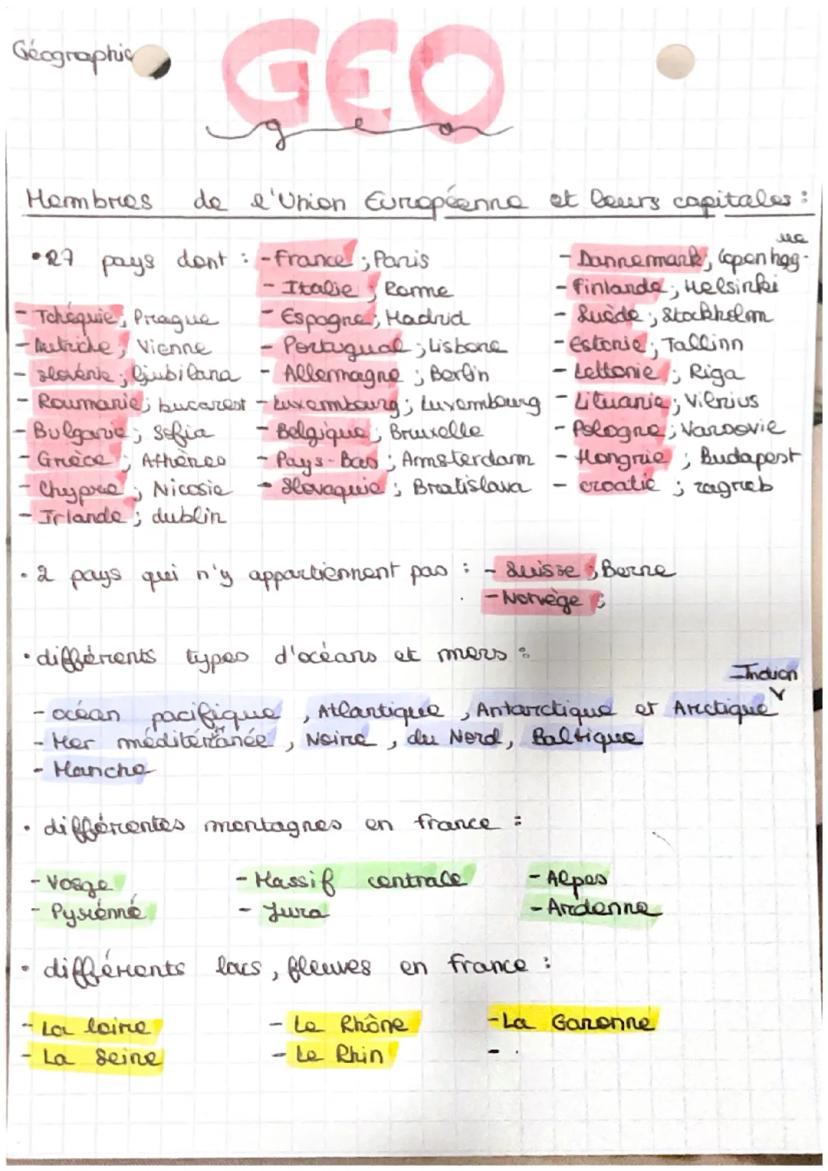 Géographie
GEO
geo
Membres de l'Union Européenne et leurs capitales :
• 27 pays dont : - France ; Paris
- Italie ; Rome
- Espagne ; Madrid
- Portugual ; Lisbone
- Allemagne ; Berlin
- Luxembourg ; Luxembourg
- Belgique ; Bruxelle
- Pays-Bas ; Amsterdam
- Slovaquie ; Bratislava
- Dannemark ; Copenhague
- Finlande ; Helsinki
- Suède ; Stockholm
- Estonie ; Tallinn
- Lettonie ; Riga
- Lituanie ; Vilnius
- Pologne ; Varsovie
- Hongrie ; Budapest
- croatie ; zagreb
- Tchéquie ; Prague
- Autriche ; Vienne
- slovénie ; ljubilana
- Roumanie ; bucarest
- Bulgarie ; Sofia
- Grèce ; Athènes
- Chypre ; Nicosie
- Irlande ; dublin
• 2 pays qui n'y appartiennent pas : - Suisse ; Berne
- Norvège ;
• différents types d'océans et mers :
- océan pacifique , Atlantique , Antarctique et Arctique Indien
- Mer méditérranée , Noire , du Nord , Baltique
- Manche
• différentes montagnes en france :
- Vosge - Massif centrale - Alpes
- Pyrénné - Jura - Ardenne
• différents lacs , fleuves en france :
- La loire - Le Rhône - La Garonne
- La Seine - Le Rhin -